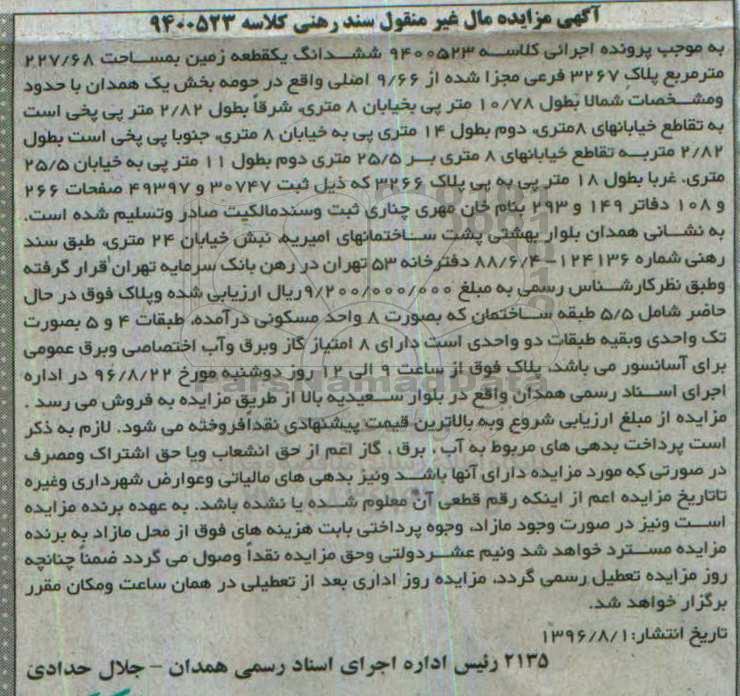 آگهی مزایده مال غیر منقول سند رهنی کلاسه ۹۴۰۰۵۲۳
به موجب پرونده اجرائی کلاسه ۹۴۰۰۵۲۳ ششدانگ یکقطعه زمین بمساحت ۲۲۷/۶۸
مترمربع پلاک ۳۲۶۷ فرعی مجزا شده از ۹/۶۶ اصلی واقع در حومه بخش یک همدان با حدود
ومشخصات شمالا بطول ۱۰/۷۸ متر پی بخیابان ۸ متری، شرقاً بطول ۲/۸۲ متر پی پخی است
به تقاطع خیابانهای ۸متری، دوم بطول ۱۴ متری پی به خیابان ۸ متری، جنوبا پی پخی است بطول
۲/۸۲ متربه تقاطع خیابانهای ۸ متری بر ۲۵/۵ متری دوم بطول ۱۱ متر پی به خیابان ۲۵/۵
متری، غربا بطول ۱۸ متر پی به پی پلاک ۳۲۶۶ که ذیل ثبت ۳۰۷۴۷ و ۴۹۳۹۷ صفحات ۲۶۶
و ۱۰۸ دفاتر ۱۴۹ و ۲۹۳ بنام خان مهری چناری ثبت وسندمالکیت صادر وتسلیم شده است.
به نشانی همدان بلوار بهشتی پشت ساختمانهای امیریه، نبش خیابان ۲۴ متری، طبق سند
رهنی شماره ۱۲۴۱۳۶-۸۸/۶/۴ دفترخانه ۵۳ تهران در رهن بانک سرمایه تهران قرار گرفته
وطبق نظرکارشناس رسمی به مبلغ ۹/۲۰۰/۰۰۰/۰۰۰ریال ارزیابی شده وپلاک فوق در حال
حاضر شامل ۵/۵ طبقه ساختمان که بصورت ۸ واحد مسکونی درآمده، طبقات ۴ و ۵ بصورت
تک واحدی وبقیه طبقات دو واحدی است دارای ۸ امتیاز گاز وبرق وآب اختصاصی وبرق عمومی
برای آسانسور می باشد، پلاک فوق از ساعت ۹ الی ۱۲ روز دوشنبه مورخ ۹۶/۸/۲۲ در اداره
اجرای اسناد رسمی همدان واقع در بلوار سعیدیه بالا از طریق مزایده به فروش می رسد .
مزایده از مبلغ ارزیابی شروع وبه بالاترین قیمت پیشنهادی نقداًفروخته می شود. لازم به ذکر
است پرداخت بدهی های مربوط به آب ، برق ، گاز اعم از حق انشعاب ویا حق اشتراک ومصرف
در صورتی که مورد مزایده دارای آنها باشد ونیز بدهی های مالیاتی وعوارض شهرداری وغیره
تاتاریخ مزایده اعم از اینکه رقم قطعی آن معلوم شده یا نشده باشد. به عهده برنده مزایده
است ونیز در صورت وجود مازاد، وجوه پرداختی بابت هزینه های فوق از محل مازاد به برنده
مزایده مسترد خواهد شد ونیم عشردولتی وحق مزایده نقداً وصول می گردد ضمناً چنانچه
روز مزایده تعطیل رسمی گردد، مزایده روز اداری بعد از تعطیلی در همان ساعت ومکان مقرر
برگزار خواهد شد.
تاریخ انتشار:۱۳۹۶/۸/۱
۲۱۳۵ رئیس اداره اجرای اسناد رسمی همدان – جلال حدادی
ParsNamadData